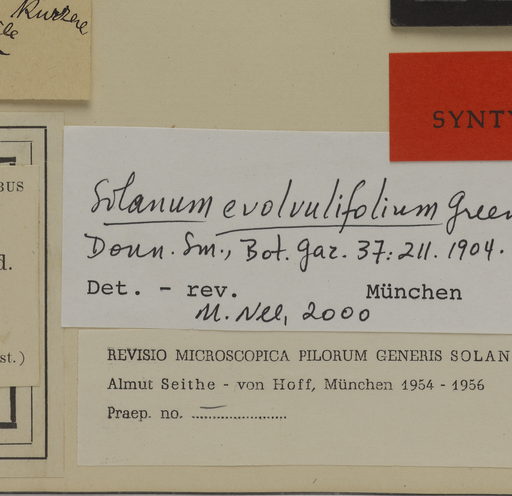 SYNTY
BUS
Solanum evolvulifolium Green
Donn. Sm., Bot. Gaz. 37: 211. 1904.
d.
Det. - rev. München
M. Nee, 2000
st.)
REVISIO MICROSCOPICA PILORUM GENERIS SOLAN
Almut Seithe - von Hoff, München 1954 - 1956
Praep. no. –